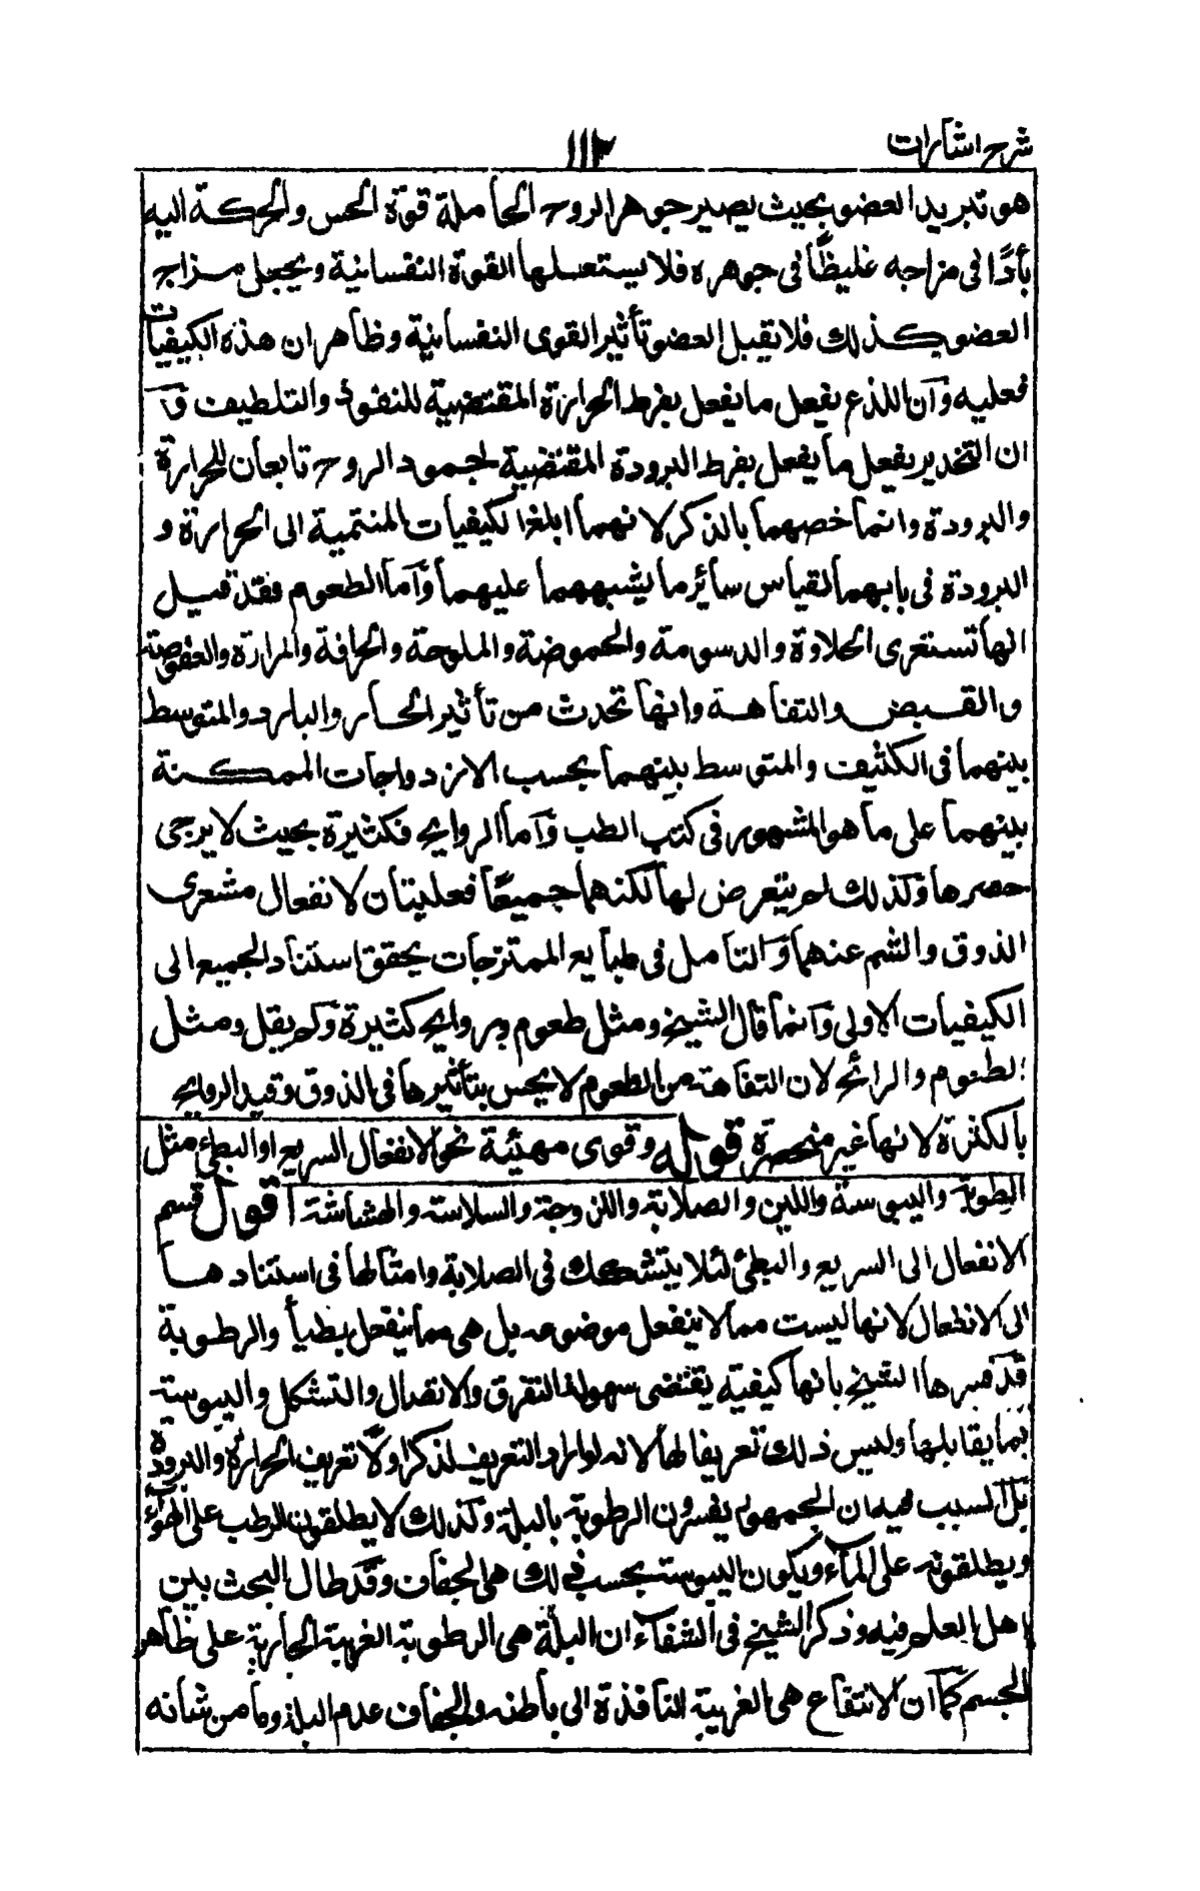 شرح اشارات ١١٢
هو تبريد العضو بحيث يصير جوهر الروح الحاملة قوة الحس والحركة اليه
باردًا فى مزاجه غليظًا فى جوهره فلا يستعملها القوة النفسانية ويجعل مزاج
العضو كذلك فلا تقبل العضو تأثير القوى النفسانية وظاهر ان هذه الكيفيات
فعليه وَان اللذع يفعل ما يفعل بفرط الحرارة المقتضية للنفوذ والتلطيف وَ
ان التخدير يفعل ما يفعل بفرط البرودة المقتضية لجمود الروح تابعان للحرارة
والبرودة وانما خصهما بالذكر لانهما ابلغ الكيفيات المنتمية الى الحرارة و
البرودة فى بابهما لقياس سائر ما يشبههما عليهما وَاما الطعوم فقد قيل
انها تسع هى الحلاوة والدسومة والحموضة والملوحة والحرافة والمرارة والعفوصة
والقبض والتفاهة وانها تحدث من تأثير الحار والبارد والمتوسط
بينهما فى الكثيف والمتوسط بينهما بحسب الازدواجات الممكنة
بينهما على ما هو المشهور فى كتب الطب وَاما الروايح فكثيرة بحيث لا يرجى
حصرها وَكذلك لم يتعرض لها لكنهما جميعًا فعليتان لانفعال مشعرى
الذوق والشم عنهما وَالتامل فى طبايع الممتزجات يحقق استناد الجميع الى
الكيفيات الاولى وَانما قال الشيخ ومثل طعوم وروايح كثيرة وَلم يقل ومثل
الطعوم والرائح لان التفاهة من الطعوم لا يحس بتأثيرها فى الذوق وقيد الروايح
بالكثرة لانها غير منحصرة قوله وقوى مهيئة نحو الانفعال السريع او البطئ مثل
الرطوبة واليبوسة واللين والصلابة واللزوجة والسلاسة والهشاشة اقول قسم
الانفعال الى السريع والبطئ لئلا يتشكك فى الصلابة وامثالها فى استنادها
الى الانفعال لانها ليست مما لا ينفعل موضوعه بل هى مما ينفعل بطيأ والرطوبة
قد فسرها الشيخ بانها كيفية يقتضى سهولة التفرق والاتصال والتشكل واليبوسة
بما يقابلها وليس ذلك تعريفا لها لانه لو اراد التعريف لذكر اولًا تعريف الحرارة والبرودة
بَل السبب فيه ان الجمهور يفسرون الرطوبة بالبلة وَكذلك لا يطلقون الرطب على الهواء
ويطلقونه على الماء ويكون اليبوسة بحسب ذلك هى الجفاف وقَد طال البحث بين
اهل العلم فيه وذكر الشيخ فى الشفاء ان البلّة هى الرطوبة الغريبة الجارية على ظاهر
الجسم كما ان الانتقاع هى الغريبة النافذة الى باطنه والجفاف عدم البلة وما من شانه